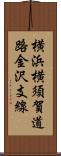 横浜横須賀道
路金沢支線